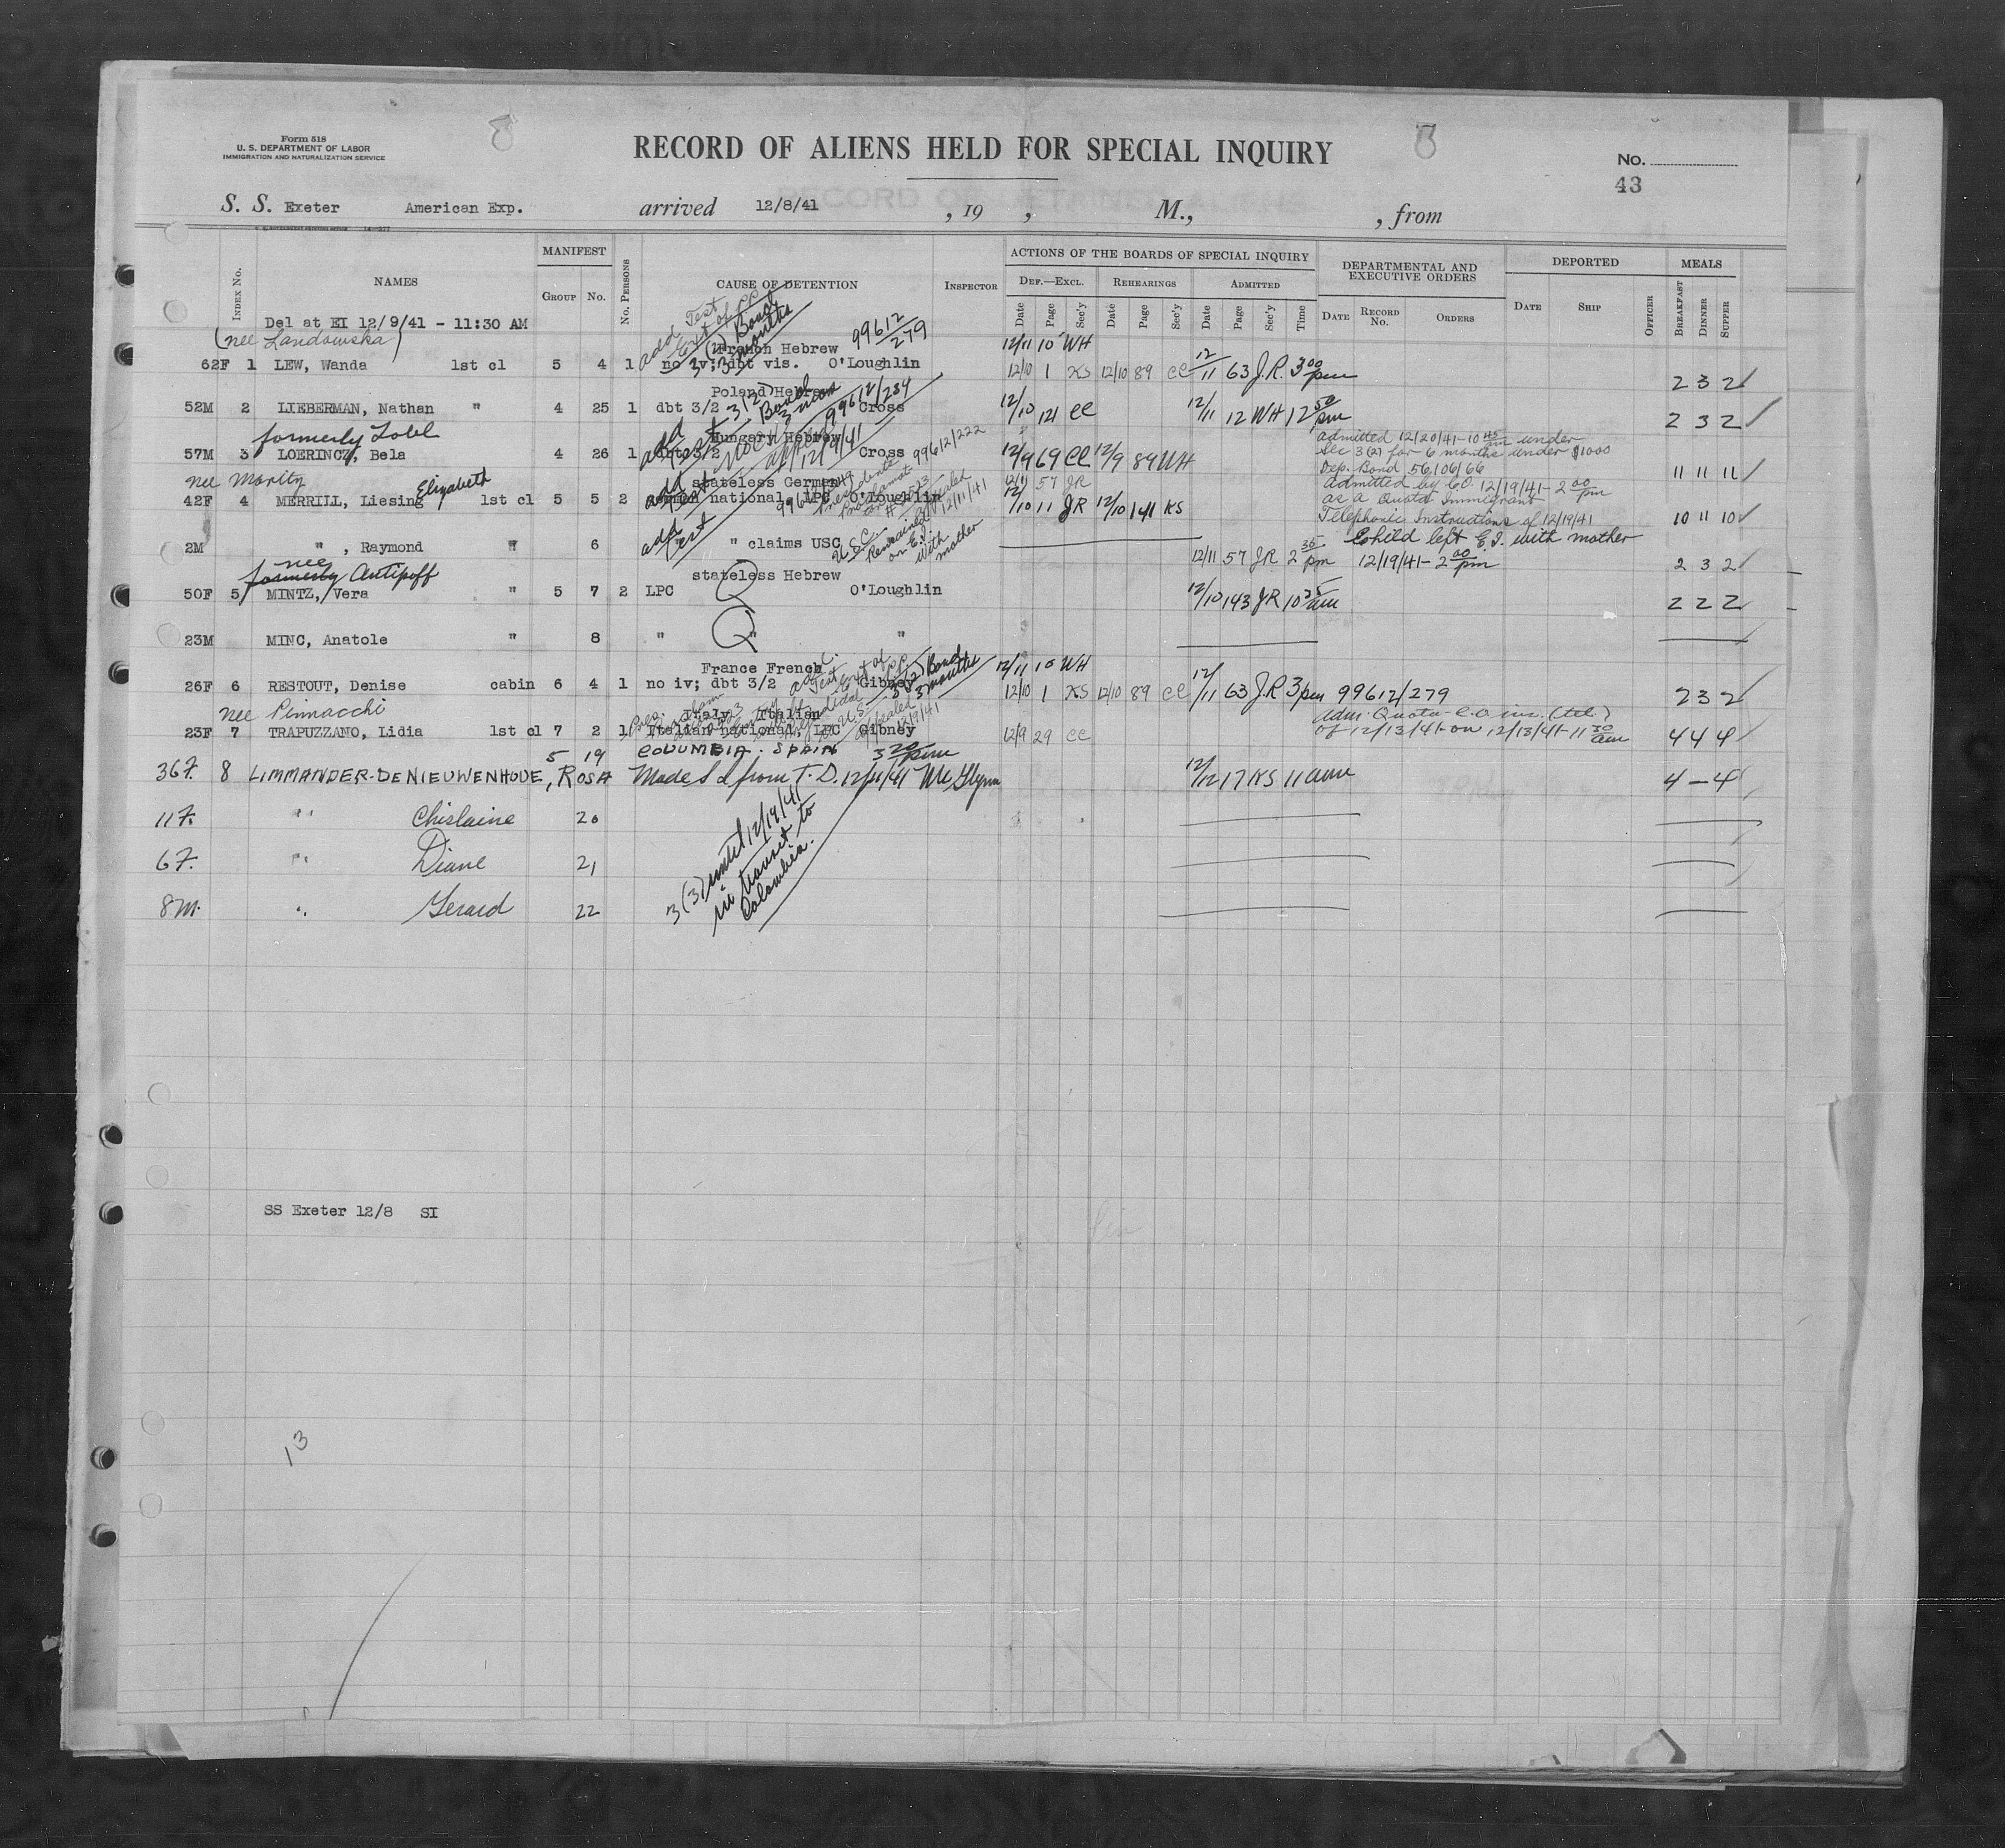 8
8
Form 518
U. S. DEPARTMENT OF LABOR
IMMIGRATION AND NATURALIZATION SERVICE
RECORD OF ALIENS HELD FOR SPECIAL INQUIRY
No.
43
S. S. Exeter American Exp. arrived 12/8/41 , 19 , M., , from
INDEX No. NAMES MANIFEST GROUP No. No. PERSONS CAUSE OF DETENTION INSPECTOR
ACTIONS OF THE BOARDS OF SPECIAL INQUIRY
DEF.—EXCL. REHEARINGS ADMITTED
Date Page Sec'y Date Page Sec'y Date Page Sec'y Time
DEPARTMENTAL AND EXECUTIVE ORDERS
DATE RECORD No. ORDERS
DEPORTED
DATE SHIP OFFICER
MEALS
BREAKFAST DINNER SUPPER
Del at EI 12/9/41 - 11:30 AM
(nee Landowska)
add Test Ext of PP
3(2) Bond 3 months
99612/279
French Hebrew 12/11 10 WH
62F 1 LEW, Wanda 1st cl 5 4 1 no iv; dbt vis. O'Loughlin 12/10 1 KS 12/10 89 CC 12/11 63 J.R. 3 00 pm 2 3 2
Poland Hebrew
3(2) Bond 3 mos
99612/234
52M 2 LIEBERMAN, Nathan " 4 25 1 dbt 3/2 Cross 12/10 121 CC 12/11 12 WH 12 50 pm 2 3 2
formerly Lobl
Hungary Hebrew
add Test
99612/222
57M 3 LOERINCZ, Bela 4 26 1 dbt 3/2 Cross 12/9 69 CC 12/9 89 WH 11 11 11
admitted 12/20/41-10 45 am under
Sec 3(2) for 6 months under $1000
Dep. Bond 56106/66
nee Moritz
stateless German 12/11 57 JR
42F 4 MERRILL, Liesing Elizabeth 1st cl 5 5 2 national, LPC O'Loughlin 12/10 11 JR 12/10 141 KS 10 11 10
appealed 12/11/41
admitted by C.O. 12/19/41-2 00 pm
as a Quota Immigrant
Telephonic Instructions of 12/19/41
add Test
2M " , Raymond " 6 " claims USC
U.S.C. Remained on E.I. with mother
12/11 57 JR 2 35 pm 2 3 2
Child left E.I. with mother
12/19/41-2 00 pm
nee
formerly Antipoff
stateless Hebrew
50F 5 MINTZ, Vera " 5 7 2 LPC O'Loughlin 12/10 143 JR 10 35 am 2 2 2
Q
23M MINC, Anatole " 8 " " "
Q
France French 12/11 10 WH
Test Ext of PP
3(2) Bond 3 months
26F 6 RESTOUT, Denise cabin 6 4 1 no iv; dbt 3/2 Gibney 12/10 1 KS 12/10 89 CC 12/11 63 J.R 3 pm 99612/279 2 3 2
nee Pinnacchi
Italy Italian
23F 7 TRAPUZZANO, Lidia 1st cl 7 2 1 Italian national, LPC Gibney 12/9 29 CC 4 4 4
appealed 12/9/41
Adm. Quota C.O. ins. (tel.)
of 12/13/41 on 12/13/41-11 30 am
5 19 COLUMBIA. SPAIN 3 20 pm
36F. 8 LIMMANDER-DENIEUWENHOVE, ROSA Made S I from T.D. 12/11/41 McGlynn 12/12 17 KS 11 am 4 — 4
11F. " Chislaine 20
6F. " Diane 21
8M. " Gerard 22
3(3) until 12/19/41
in transit to
Colombia.
SS Exeter 12/8 SI
13